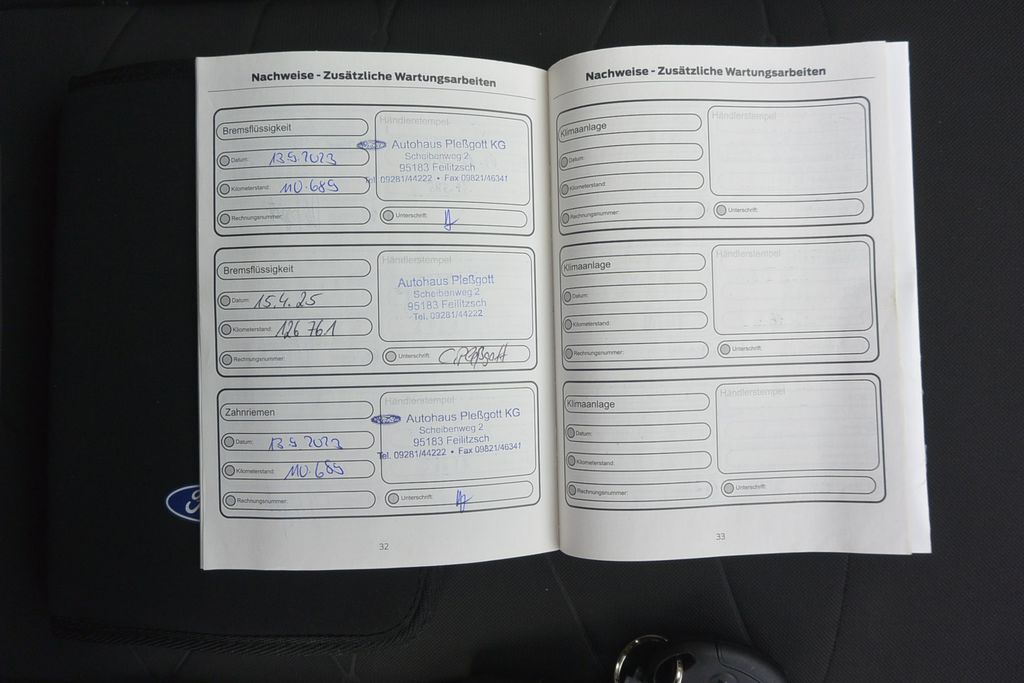 Nachweise - Zusätzliche Wartungsarbeiten
Bremsflüssigkeit
Händlerstempel
Autohaus Pleßgott KG
Scheibenweg 2
95183 Feilitzsch
Tel. 09281/44222 • Fax 09821/46341
Datum: 13.9.2023
Kilometerstand: 110.689
Rechnungsnummer:
Unterschrift:
Bremsflüssigkeit
Händlerstempel
Autohaus Pleßgott
Scheibenweg 2
95183 Feilitzsch
Tel. 09281/44222
Datum: 15.4.25
Kilometerstand: 126 761
Rechnungsnummer:
Unterschrift: C. Pleßgott
Zahnriemen
Händlerstempel
Autohaus Pleßgott KG
Scheibenweg 2
95183 Feilitzsch
Tel. 09281/44222 • Fax 09821/46341
Datum: 13.9.2023
Kilometerstand: 110.689
Rechnungsnummer:
Unterschrift:
32
Nachweise - Zusätzliche Wartungsarbeiten
Klimaanlage
Händlerstempel
Datum:
Kilometerstand:
Rechnungsnummer:
Unterschrift:
Klimaanlage
Händlerstempel
Datum:
Kilometerstand:
Rechnungsnummer:
Unterschrift:
Klimaanlage
Händlerstempel
Datum:
Kilometerstand:
Rechnungsnummer:
Unterschrift:
33